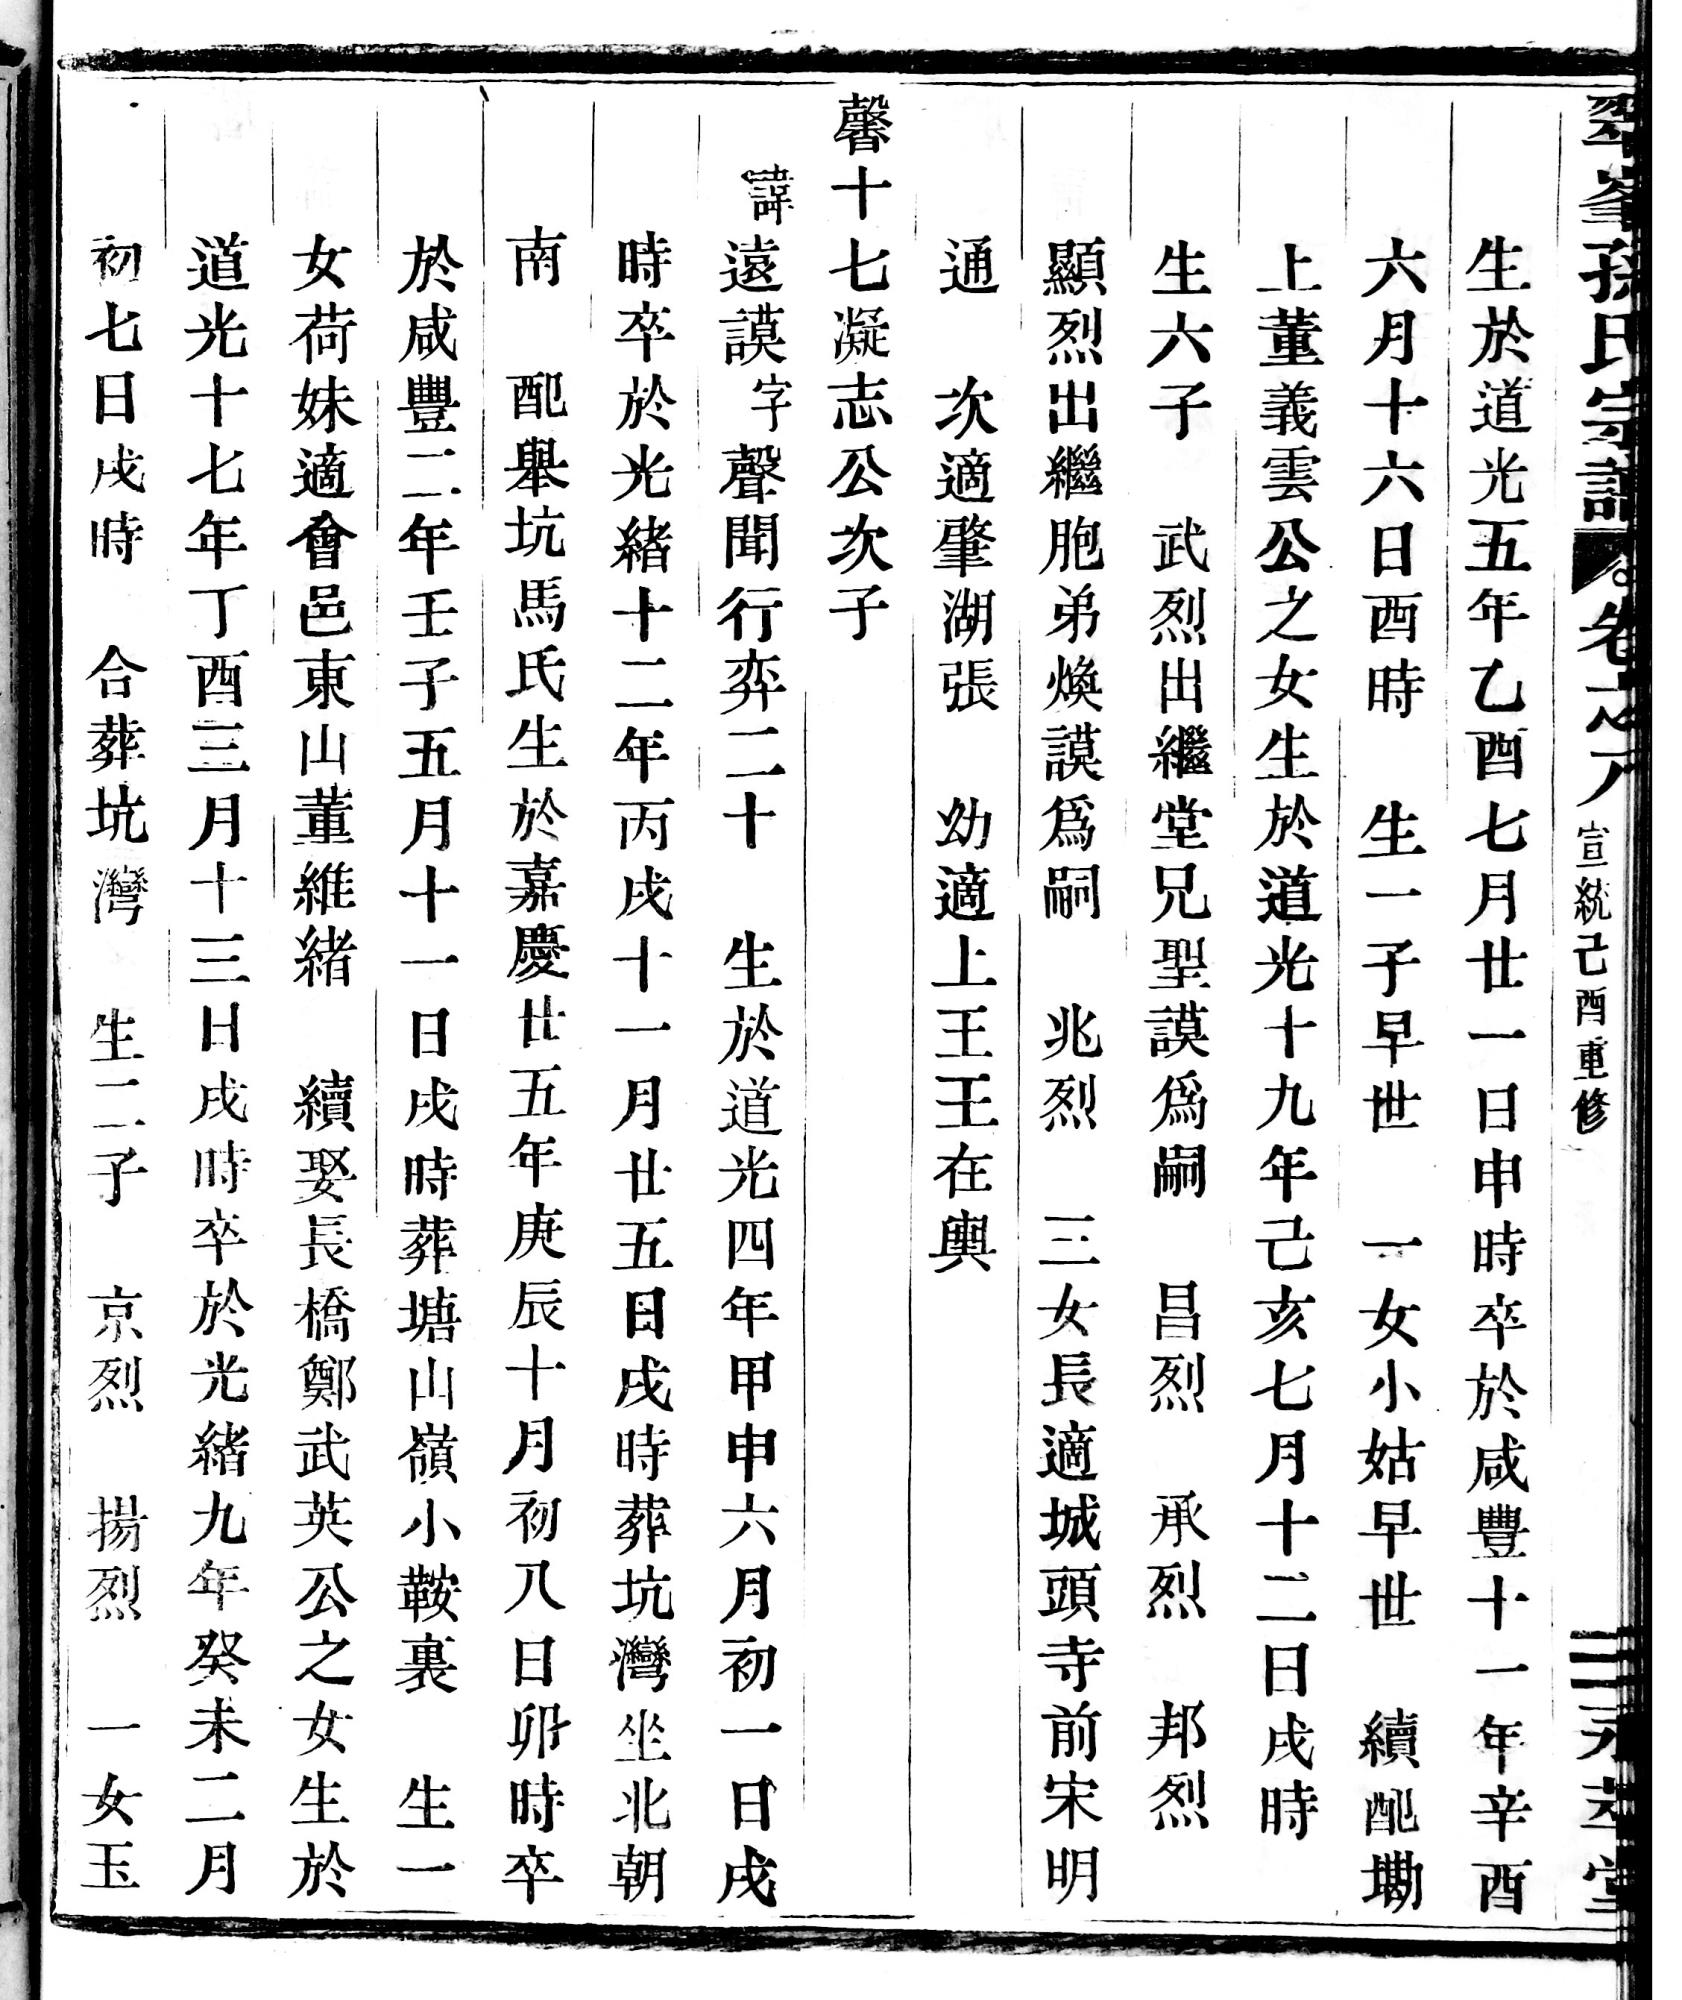 翠峯孫氏宗譜 卷之八 宣統己酉重修 永萃堂
生於道光五年乙酉七月廿一日申時卒於咸豐十一年辛酉
六月十六日酉時 生一子早世 一女小姑早世 續配墈
上董義雲公之女生於道光十九年己亥七月十二日戌時
生六子 武烈出繼堂兄聖謨爲嗣 昌烈 承烈 邦烈
顯烈出繼胞弟煥謨爲嗣 兆烈 三女長適城頭寺前宋明
通 次適肇湖張 幼適上王王在輿
馨十七凝志公次子
諱遠謨字聲聞行弈二十 生於道光四年甲申六月初一日戌
時卒於光緒十二年丙戌十一月廿五日戌時葬坑灣坐北朝
南 配舉坑馬氏生於嘉慶廿五年庚辰十月初八日卯時卒
於咸豐二年壬子五月十一日戌時葬塘山嶺小鞍裏 生一
女荷妹適會邑東山董維緒 續娶長橋鄭武英公之女生於
道光十七年丁酉三月十三日戌時卒於光緒九年癸未二月
初七日戌時 合葬坑灣 生二子 京烈 揚烈 一女玉